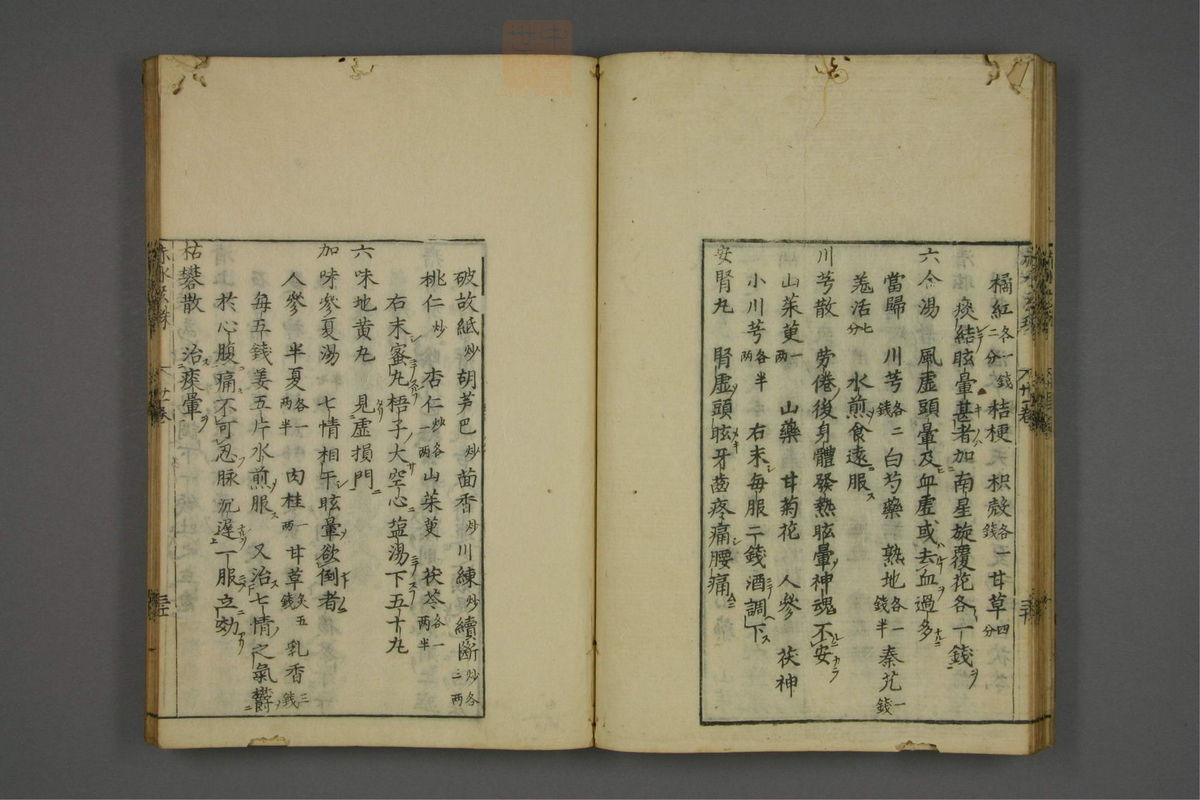 橘紅各一錢二分 桔梗 天 枳殼各一錢 甘草四分
痰結眩暈甚者加南星旋覆花各一錢
六合湯 風虛頭暈及血虛或去血過多
當歸 川芎各二錢 白芍藥 熟地各一錢半 秦艽一錢
羗活七分 水煎食遠服
川芎散 勞倦後身體發熱眩暈神魂不安
山茱萸一两 山藥 甘菊花 人參 茯神
小川芎各半两 右末每服二錢酒調下
安腎丸 腎虛頭眩牙齒疼痛腰痛
破故紙炒 胡芦巴炒 茴香炒 川練炒 續斷炒各二两
桃仁炒 杏仁炒各一两 山茱萸 茯苓各一两半
右末蜜丸梧子大空心盐湯下五十丸
六味地黄丸 見虛損門
加味參夏湯 七情相干眩暈欲倒者
人參 半夏各一两半 肉桂一两 甘草炙五錢 乳香三錢
每五錢姜五片水煎服 又治七情之氣欝
於心腹痛不可忍脉沉遲一服立効
枯礬散 治痰暈
赤水玄珠 廿一卷